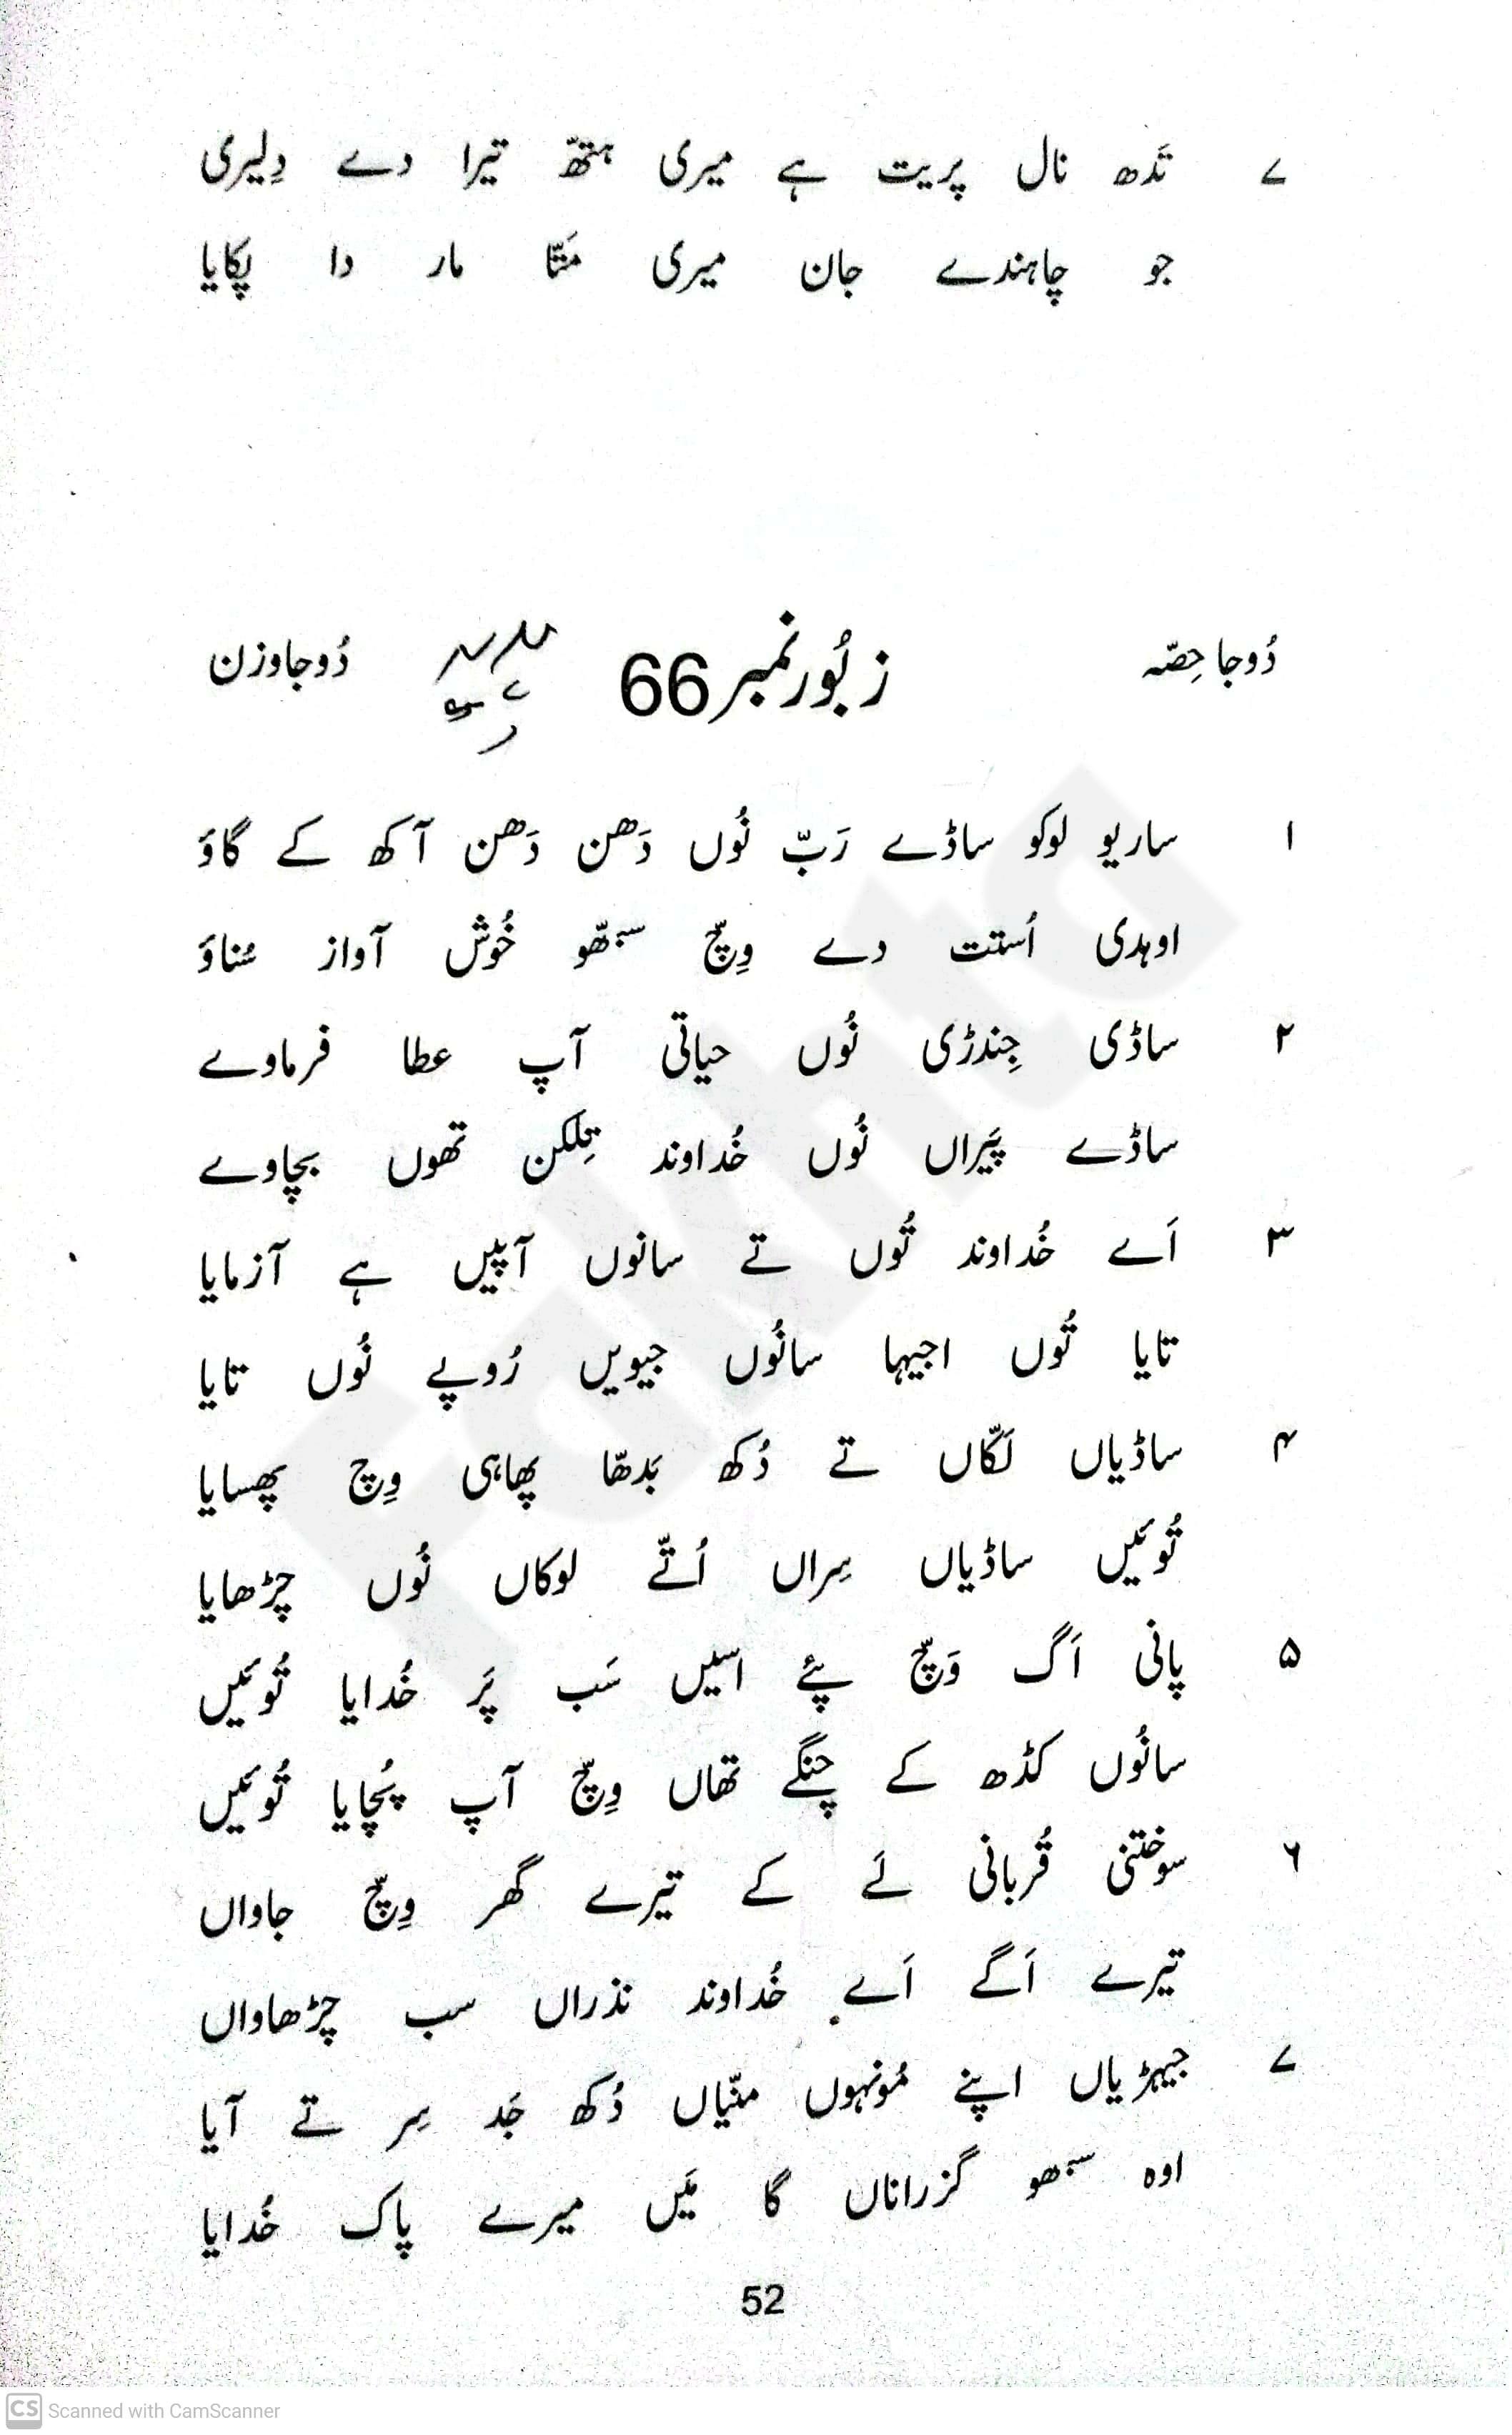 ۷ تَدھ نال پریت ہے میری ہتھّ تیرا دے دِلیری
جو چاہندے جان میری مَتّا مار دا پکایا
دُوجا حِصّہ زبُور نمبر 66 دُوجا وزن
۱ ساریو لوکو ساڈے رَبّ نُوں دَھن دَھن آکھ کے گاوَ
اوہدی اُستت دے وِچّ سبھّو خُوش آواز سُناوَ
۲ ساڈی جِندڑی نُوں حیاتی آپ عطا فرماوے
ساڈے پَیراں نُوں خُداوند تِلکن تھوں بچاوے
۳ اَے خُداوند تُوں تے سانوں آپیں ہے آزمایا
تایا تُوں اجیہا سانُوں جیویں رُوپے نُوں تایا
۴ ساڈیاں لَکّاں تے دُکھ بَدھّا پھاہی وِچ پھسایا
تُوئیں ساڈیاں سِراں اُتّے لوکاں نُوں چڑھایا
۵ پانی اَگ وَچّ پئے اسیں سَب پَر خُدایا تُوئیں
سانُوں کڈھ کے چنگے تھاں وِچّ آپ پُچایا تُوئیں
۶ سوختنی قُربانی لَے کے تیرے گھر وِچّ جاواں
تیرے اَگے اَے خُداوند نذراں سب چڑھاواں
۷ جیہڑیاں اپنے مُونہوں منّیاں دُکھ جَد سِر تے آیا
اوہ سبھو گزراناں گا مَیں میرے پاک خُدایا
52
Fakhta
CS Scanned with CamScanner